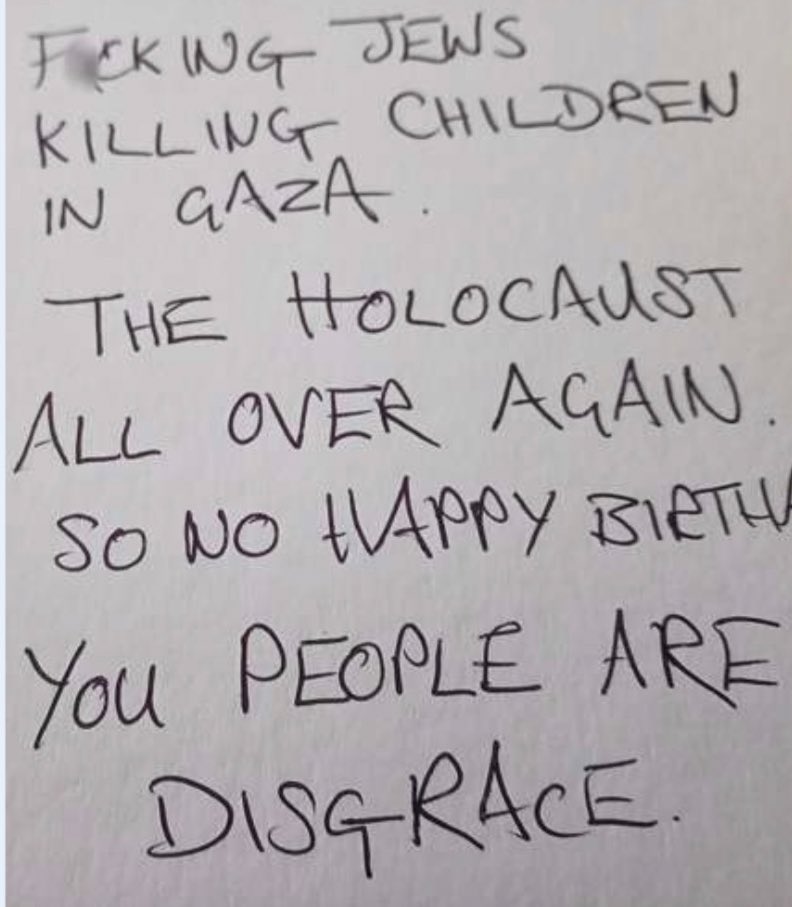 F CKING JEWS
KILLING CHILDREN
IN GAZA.
THE HOLOCAUST
ALL OVER AGAIN.
SO NO HAPPY BIRTH
YOU PEOPLE ARE
DISGRACE.